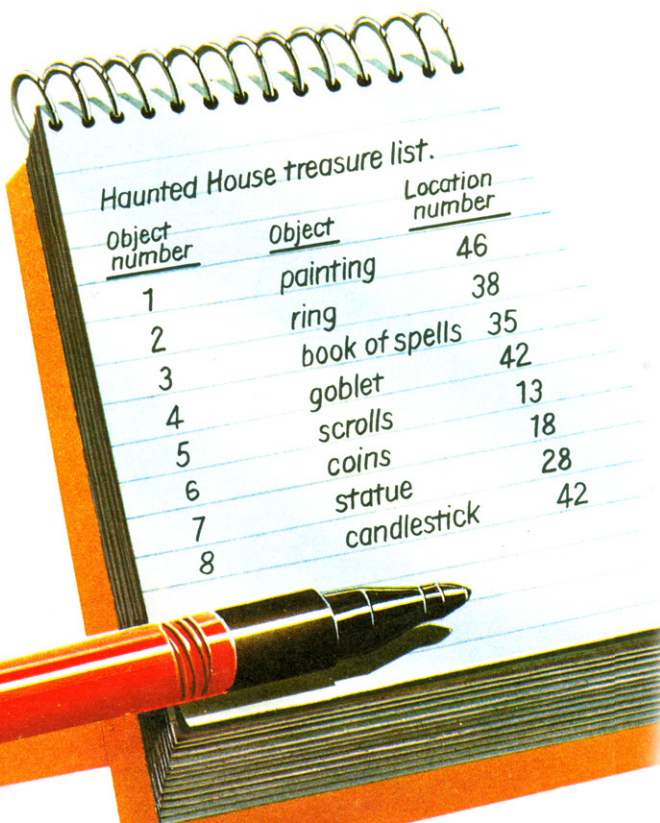 Haunted House treasure list.
Object number Object Location number
1 painting 46
2 ring 38
3 book of spells 35
4 goblet 42
5 scrolls 13
6 coins 18
7 statue 28
8 candlestick 42